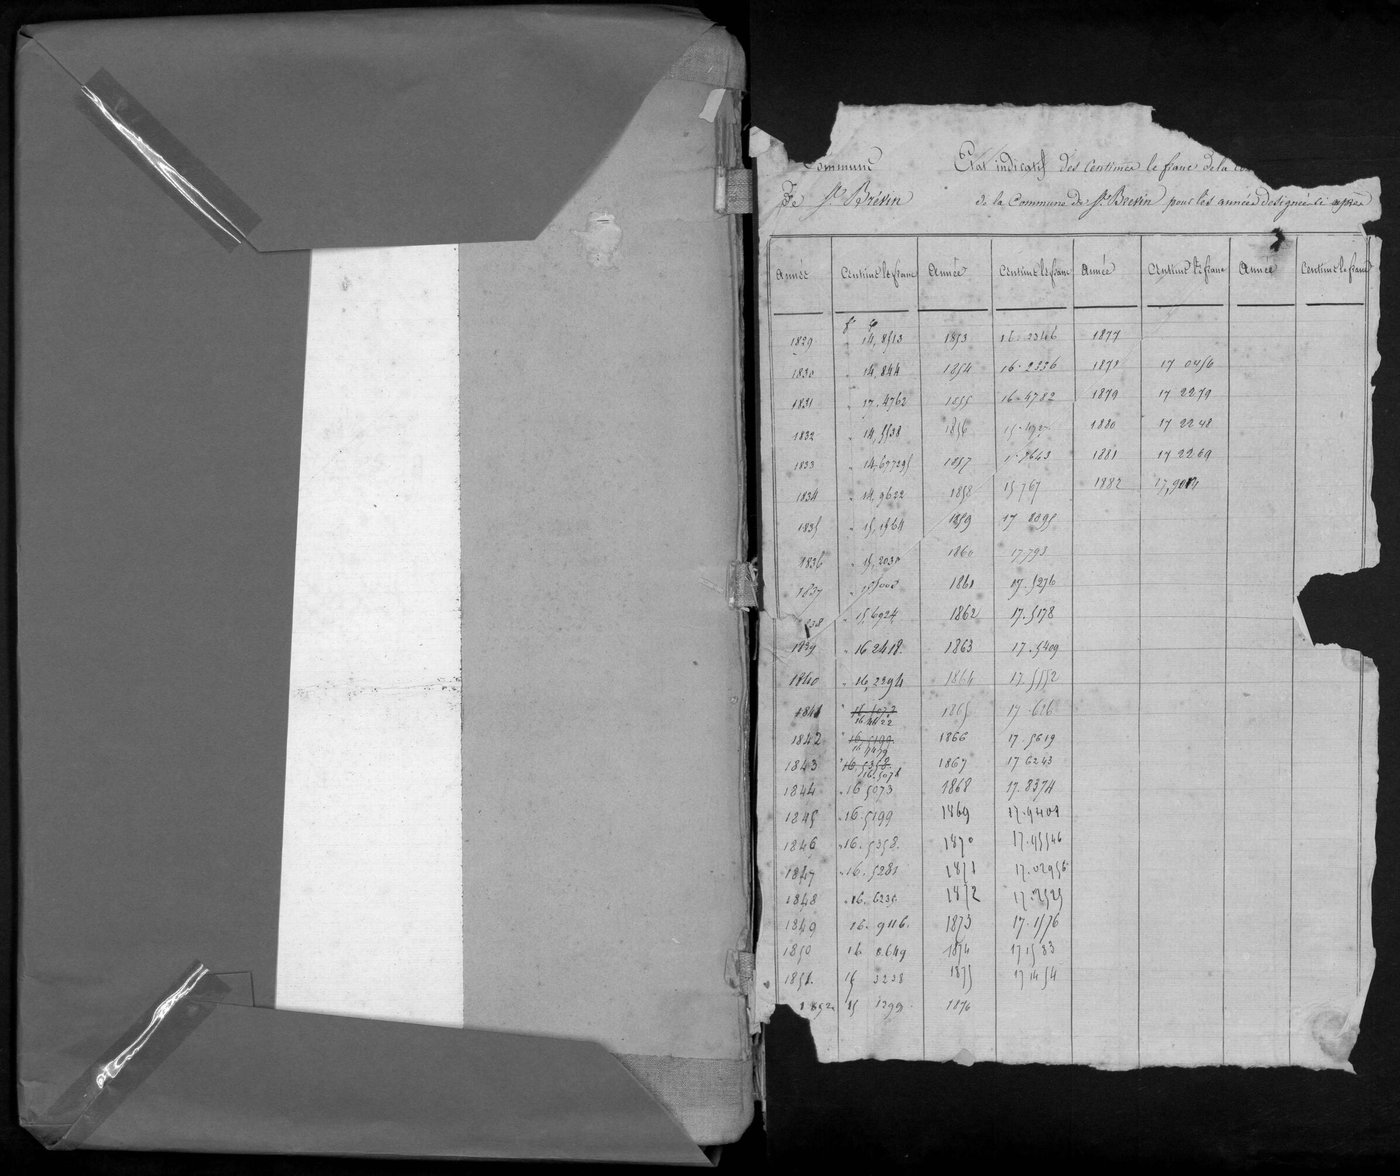 Commune Etat indicatif des Centimes le franc de la
De St Brévin de la Commune de St Brevin pour les années designées ci après
Année Centime le franc Année Centime le franc Année Centime le franc Année Centime le franc
fr c
1829 " 14,8513 1853 16.2346 1877
1830 " 14,844 1854 16.2336 1878 17 0456
1831 " 17.4762 1855 16.4782 1879 17 2279
1832 " 14,5538 1856 1880 17 2248
1833 " 14,677295 1857 1881 17 2269
1834 " 14,9622 1858 15 767 1882
1835 " 15,1564 1859 17 8095
1836 " 15,2030 1860 17,793
1837 " 1861 17.5276
1838 " 15,6924 1862 17.5178
1839 " 16 2418 1863 17.5409
1840 " 16,2394 1864 17.5552
1841 16,5073 1865 17 616
16,4422
1842 16,5199 1866 17.5619
1843 16,5358 1867 17 6243
16.5076
1844 " 16 5073 1868 17.8374
1845 " 16.5199 1869 17.9404
1846 " 16.5358 1870 17.95546
1847 " 16.5281 1871 17.02956
1848 " 16.6235 1872 17.2525
1849 16. 9116 1873 17.1576
1850 16 8649 1874 17 1583
1851 15 3238 1875 17 1454
1852 15 1399 1876